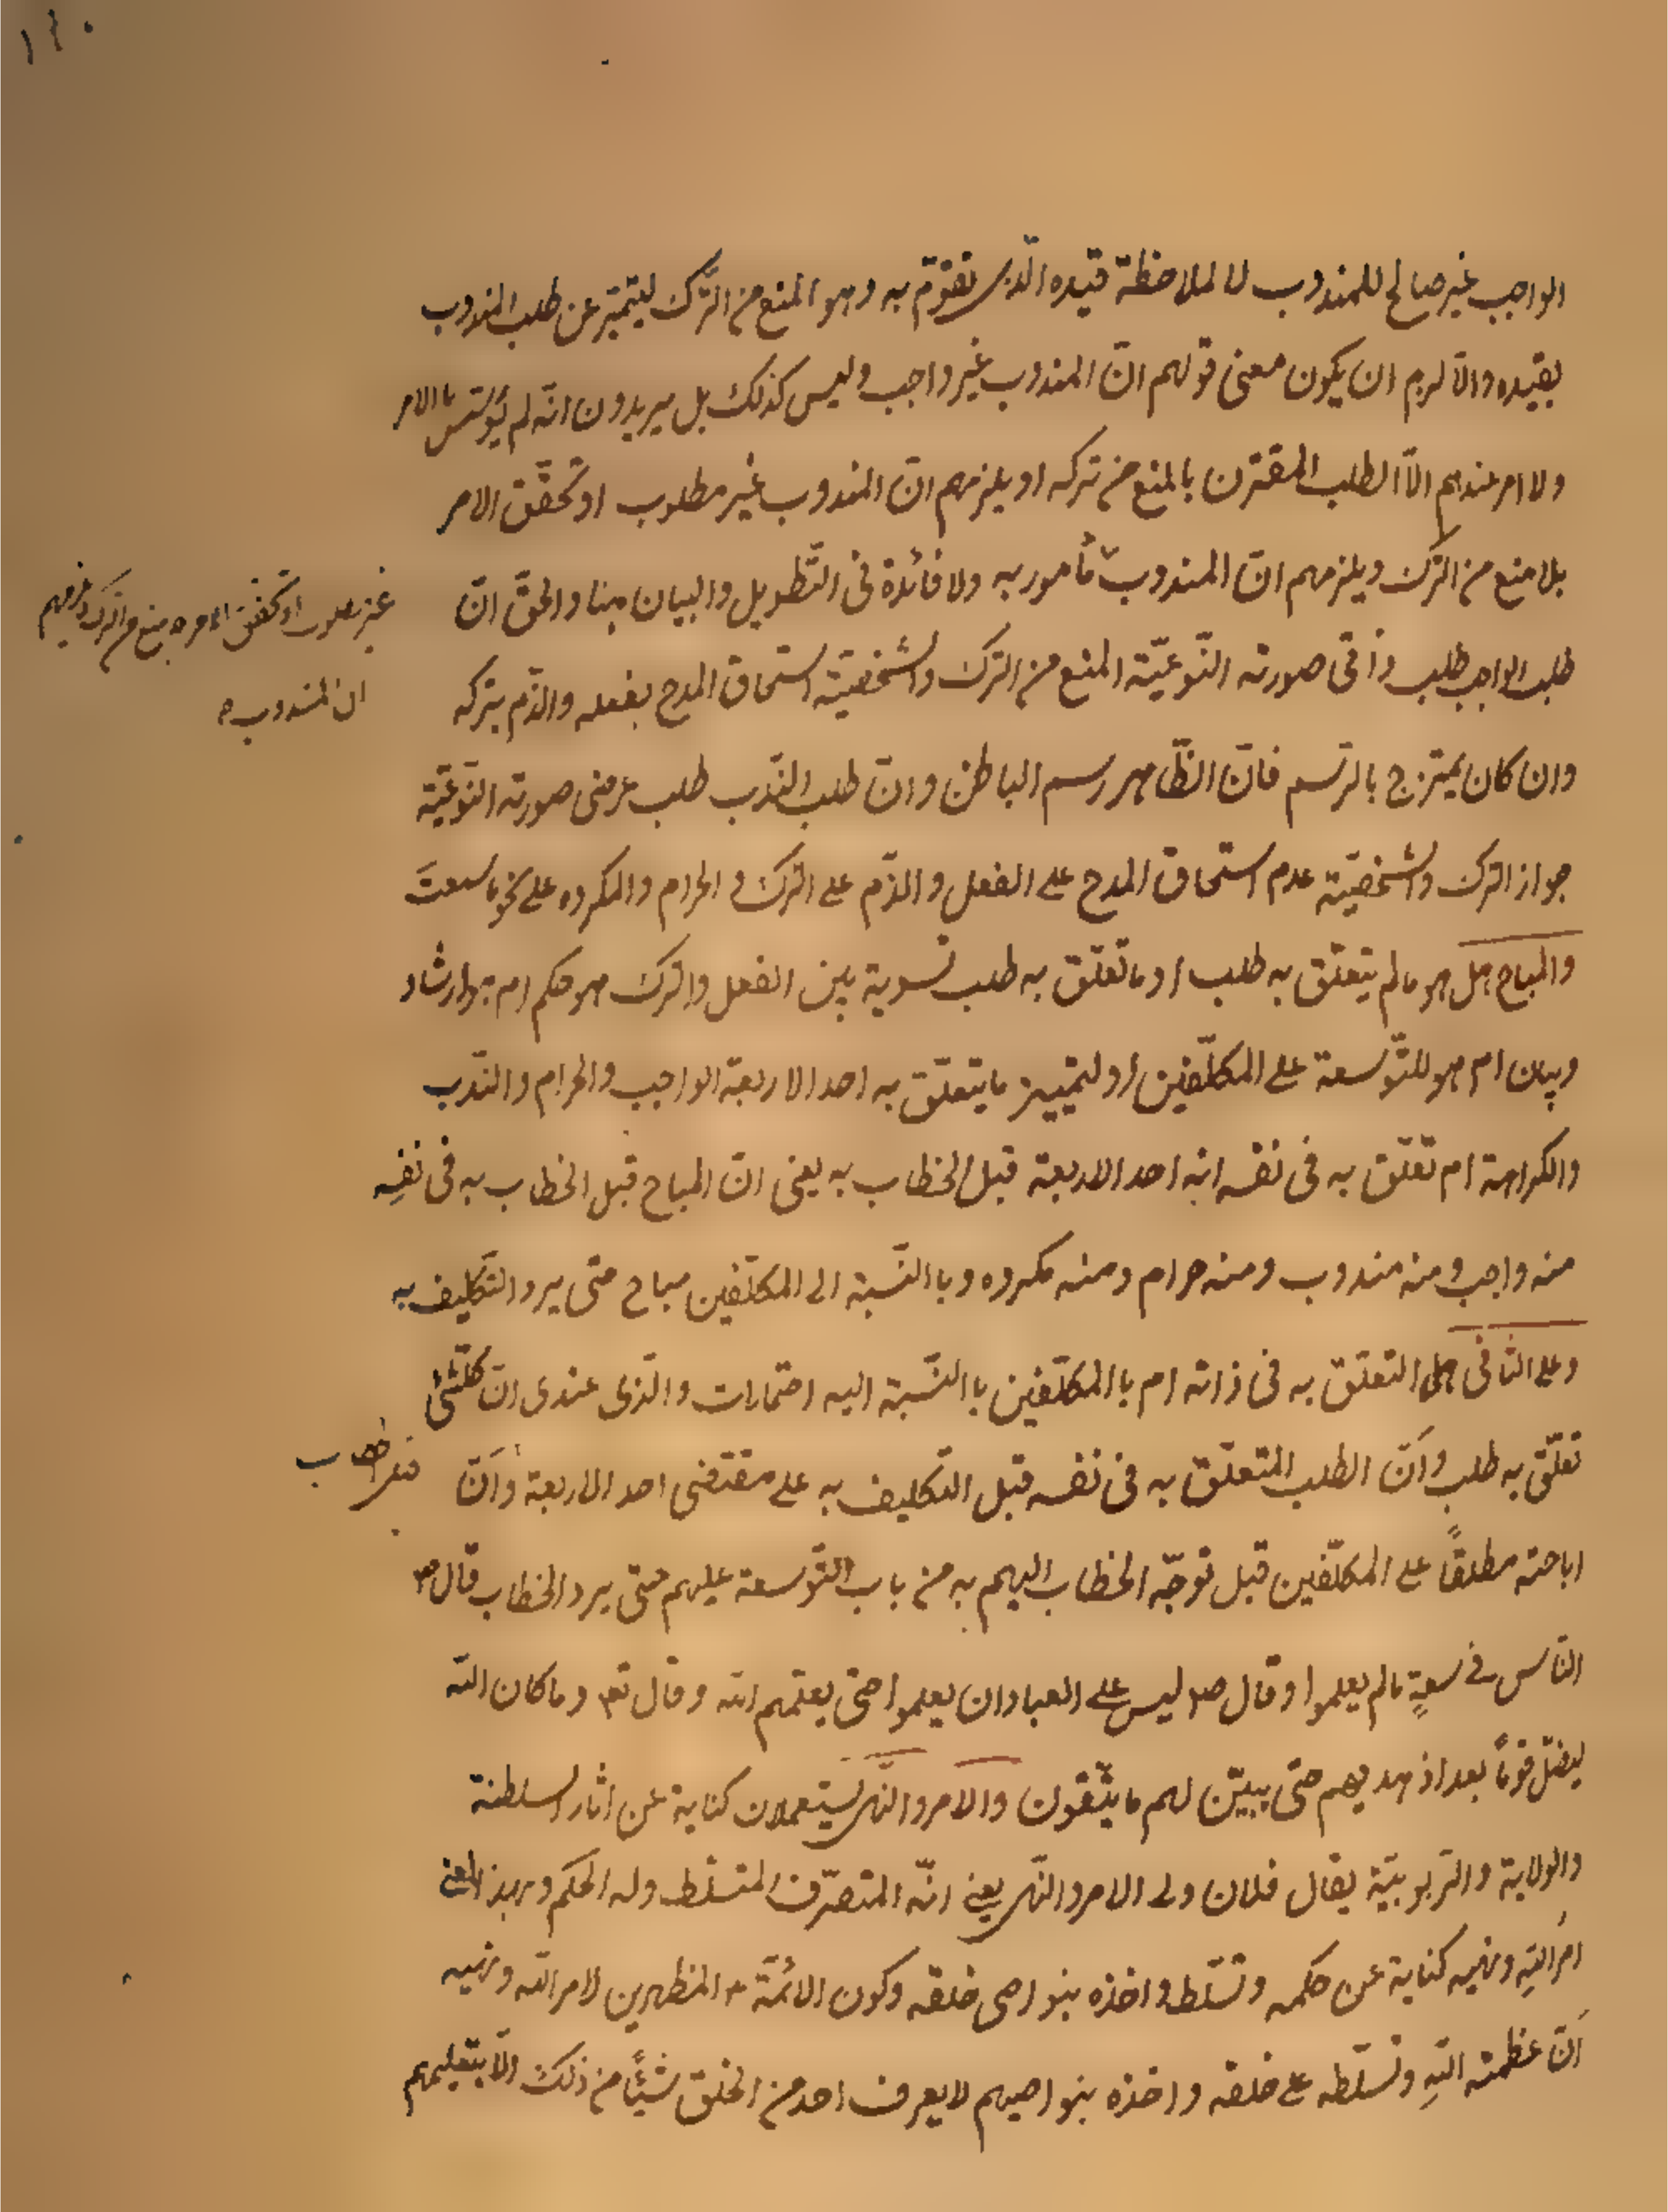 ١٢٠
الواجب غير صالح للمندوب لا لملاحظة قيده الّذى تقوّم به وهو المنع من التّرك ليتميّز عن طلب المندوب
بقيده والّا لزم ان يكون معنى قولهم انّ المندوب غير واجب وليس كذلك بل يريدون انّه لم يؤسّس بالامر
ولا امر عندهم الّا الطلب المقترن بالمنع من تركه او يلزمهم انّ المندوب غير مطلوب او تحقّق الامر
بلا منع من الترك ويلزمهم انّ المندوب مأمور به ولا فائدة فى التّطويل والبيان هنا والحقّ انّ
غير مطلوب او تحقق الامر بلا منع من الترك ويلزمهم
ان المندوب
طلب الواجب طلب ذاتى صورته النّوعيّة المنع من الترك والشخصيّة استحقاق المدح بفعله والذّم بتركه
وان كان يمتزج بالرّسم فانّ الظّاهر رسم الباطن وانّ طلب النّدب طلب عرضى صورته النّوعيّة
جواز الترك والشخصيّة عدم استحقاق المدح على الفعل والذّم على الترك و الحرام والمكروه على نحو ما سمعتَ
والمباح هل هو ما لم يتعلّق به طلب او ما تعلّق به طلب تسوية بين الفعل والترك هو حكم ام هو ارشاد
وبيان ام هو للتّوسعة على المكلّفين او لتمييز ما يتعلّق به احد الاربعة الواجب والحرام والنّدب
والكراهة ام تعلّق به فى نفسه انّه احد الاربعة قبل الخطاب به يعنى انّ المباح قبل الخطاب به فى نفسِه
منه واجب ومنه مندوب ومنه حرام ومنه مكروه وبا النّسبة الى المكلّفين مباح حتى يرد التّكليف به
وعلى الثّانى هل التعلّق به فى ذاته ام با المكلّفين با النّسبة اليه احتمالات والّذى عندى انّ كلّشئ
تعلّق به طلب وأنّ الطلب المتعلّق به فى نفسه قبل التكليف به على مقتضى احد الاربعة وأنّ
اباحته مطلقاً على المكلّفين قبل توجّه الخطاب اليهم به من باب التّوسعة عليهم حتّى يرد الخطاب قال ص
النّاس فى سعةٍ ما لم يعلموا وقال ص ليس على العباد ان يعلموا حتى يعلّمهم الله وقال تع وما كان الله
ليضلّ قوماً بعد اذ هديهم حتّى يبيّن لهم ما يتّقون والامر والنّهى يستعملان كناية عن اثار السلطنة
والولاية والرّبوبيّة يقال فلان ولى الامر والنّهى يعنى انّه المتصرّف المتسلّط وله الحكم وبهذا المعنى
امرُ اللهِ ونهيه كناية عن حكمه وتسلّطه واخذه بنواصى خلقه وكون الائمّة ع المظهرين لامر الله ونهيه
أنّ عظمته اللهِ وتسلّطه على خلقه واخذه بنواصيهم لا يعرف احد من الخلق شيئاً من ذلك الّا بتعليمهم